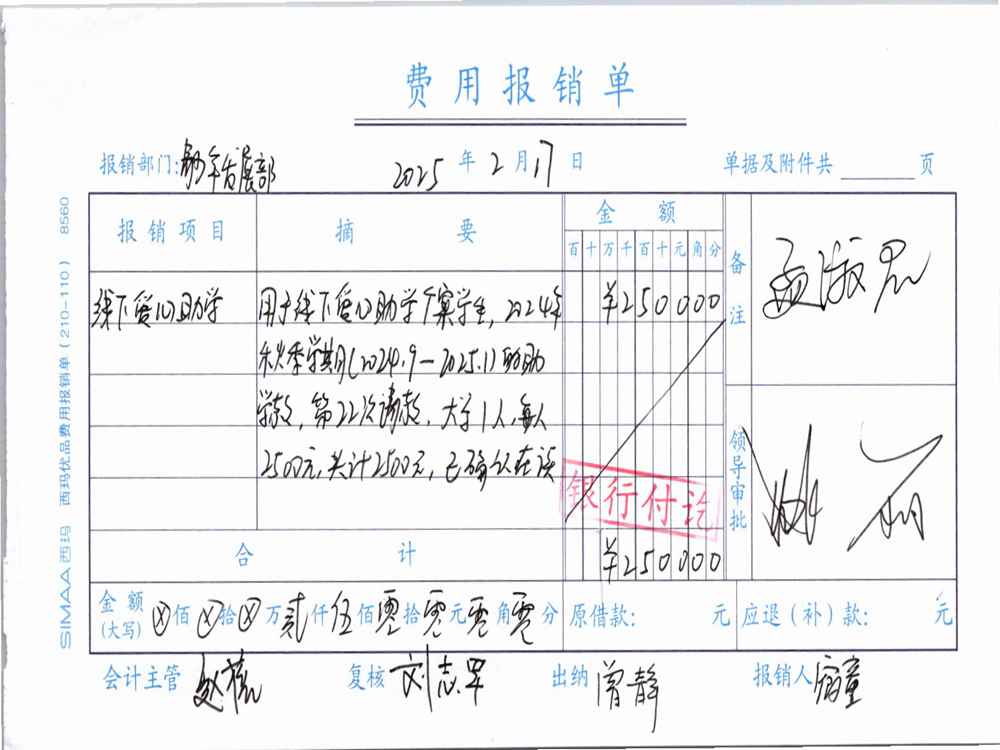 费用报销单
报销部门: 发展部 2025年2月17日 单据及附件共 页
报销项目 摘要 金额 备注
百十万千百十元角分
线下爱心助学 用于线下爱心助学个案学生,2024年 ¥250000
秋季学期(2024.9—2025.1)的助
学款,第22次请款,大学1人,每人
2500元,共计2500元,已确认在读
银行付讫
领导审批
合计 ¥250000
金额(大写) ⊗佰⊗拾⊗万贰仟伍佰零拾零元零角零分 原借款: 元 应退(补)款: 元
会计主管 复核 刘志军 出纳 曾静 报销人
SIMAA西玛 西玛优品费用报销单(210-110) 8560